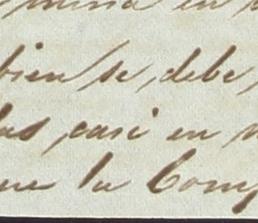 en
bien se, debe,
las, casi en
que la Comp